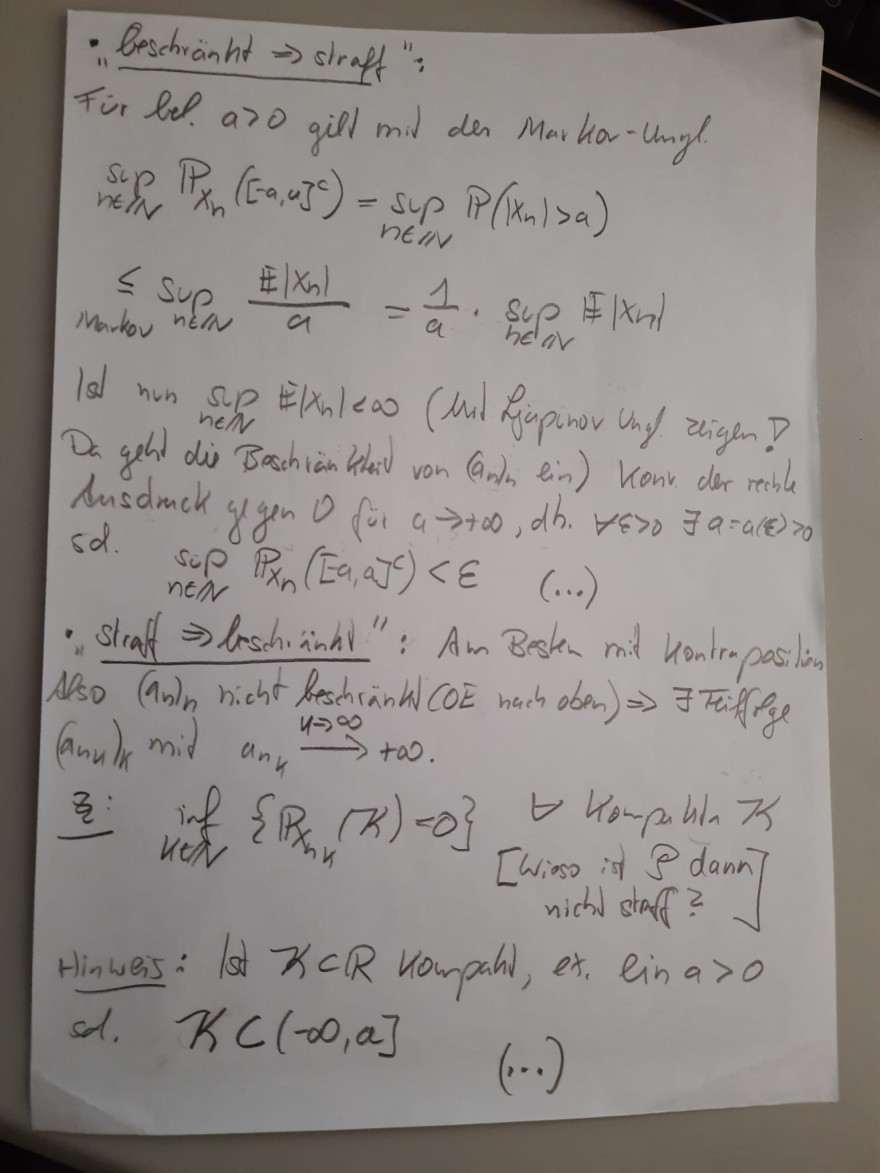 • „beschränkt ⇒ straff":
Für bel. a>0 gilt mit der Markov-Ungl.
sup_{n∈ℕ} ℙ_{X_n}([-a,a]^c) = sup_{n∈ℕ} ℙ(|X_n|>a)
≤_{Markov} sup_{n∈ℕ} 𝔼|X_n|/a = 1/a · sup_{n∈ℕ} 𝔼|X_n|
Ist nun sup_{n∈ℕ} 𝔼|X_n|<∞ (Mit Ljapunov Ungl. zeigen!
Da geht die Beschränktheit von (a_n)_n ein) konv. der rechte
Ausdruck gegen 0 für a→+∞, dh. ∀ε>0 ∃ a=a(ε)>0
sd.
sup_{n∈ℕ} ℙ_{X_n}([-a,a]^c) < ε (...)
• „straff ⇒ beschränkt": Am Besten mit Kontraposition
Also (a_n)_n nicht beschränkt (OE nach oben) ⇒ ∃ Teilfolge
(a_{n_k})_k mit a_{n_k} →^{k→∞} +∞.
Z: inf_{k∈ℕ} {ℙ_{X_{n_k}}(K)=0} ∀ Kompakta K
[Wieso ist 𝒫 dann
nicht straff?]
Hinweis: Ist K⊂ℝ kompakt, ex. ein a>0
sd. K⊂(-∞,a]
(...)